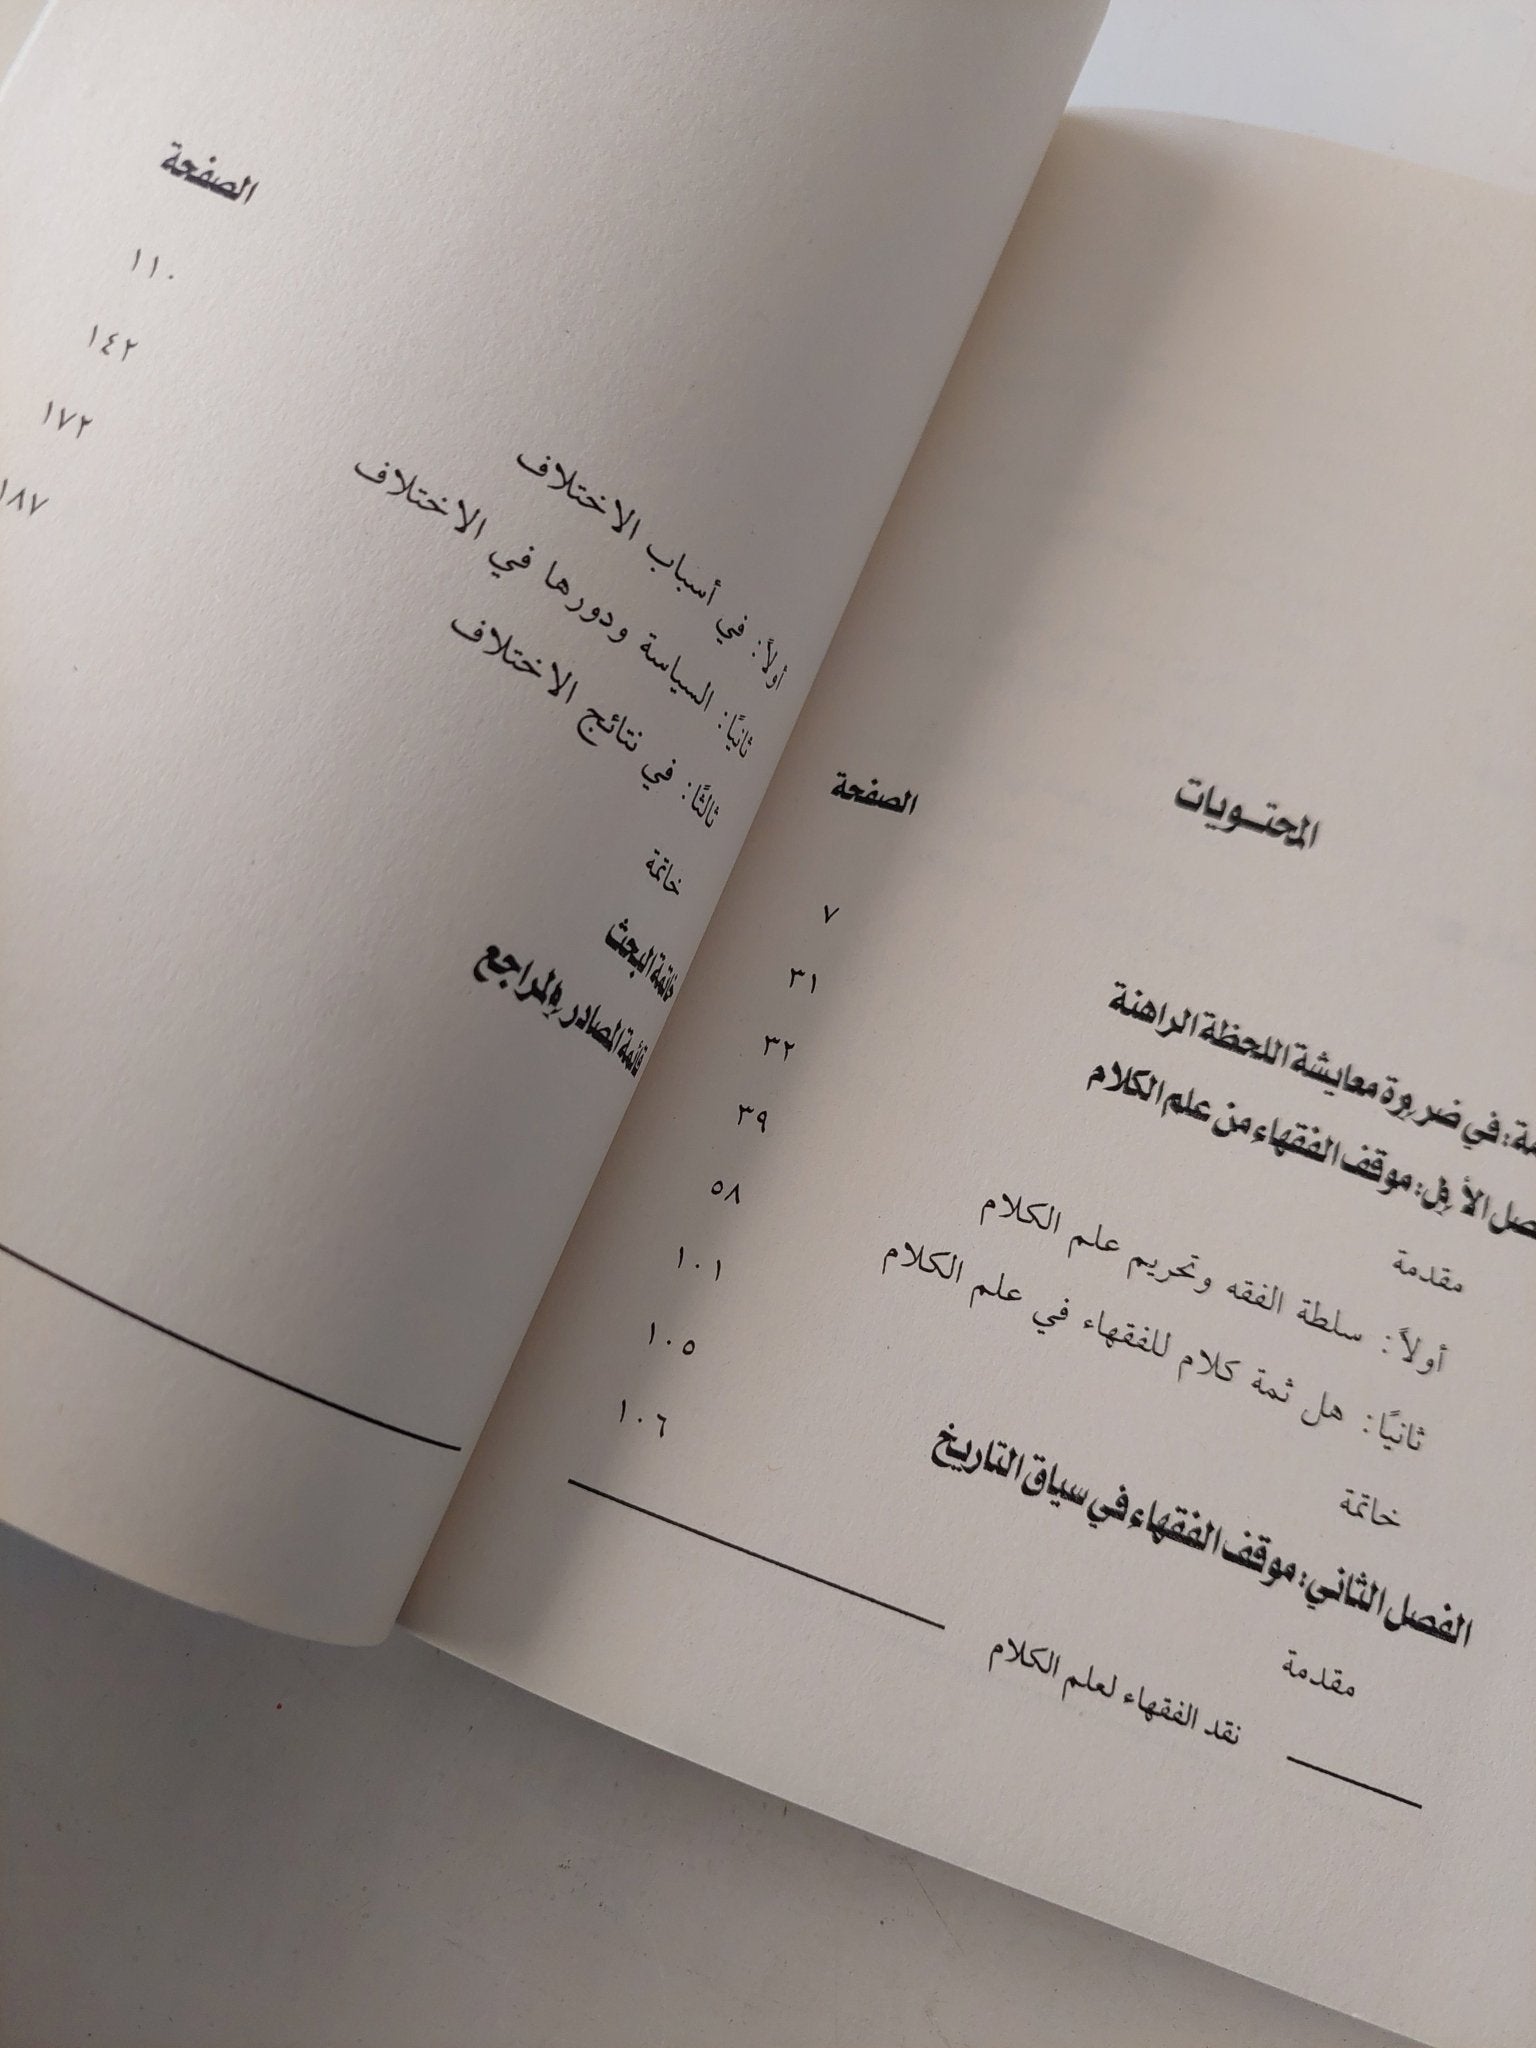 المحتويات
الصفحة
مة: في ضرورة معايشة اللحظة الراهنة ٧
صل الأول: موقف الفقهاء من علم الكلام ٣١
مقدمة ٣٢
أولاً: سلطة الفقه وتحريم علم الكلام ٣٩
ثانيًا: هل ثمة كلام للفقهاء في علم الكلام ٥٨
خاتمة ١٠١
الفصل الثاني: موقف الفقهاء في سياق التاريخ ١٠٥
مقدمة ١٠٦
نقد الفقهاء لعلم الكلام
الصفحة
أولاً: في أسباب الاختلاف ١١٠
ثانيًا: السياسة ودورها في الاختلاف ١٤٢
ثالثًا: في نتائج الاختلاف ١٧٢
خاتمة ١٨٧
خاتمة البحث
قائمة المصادر والمراجع